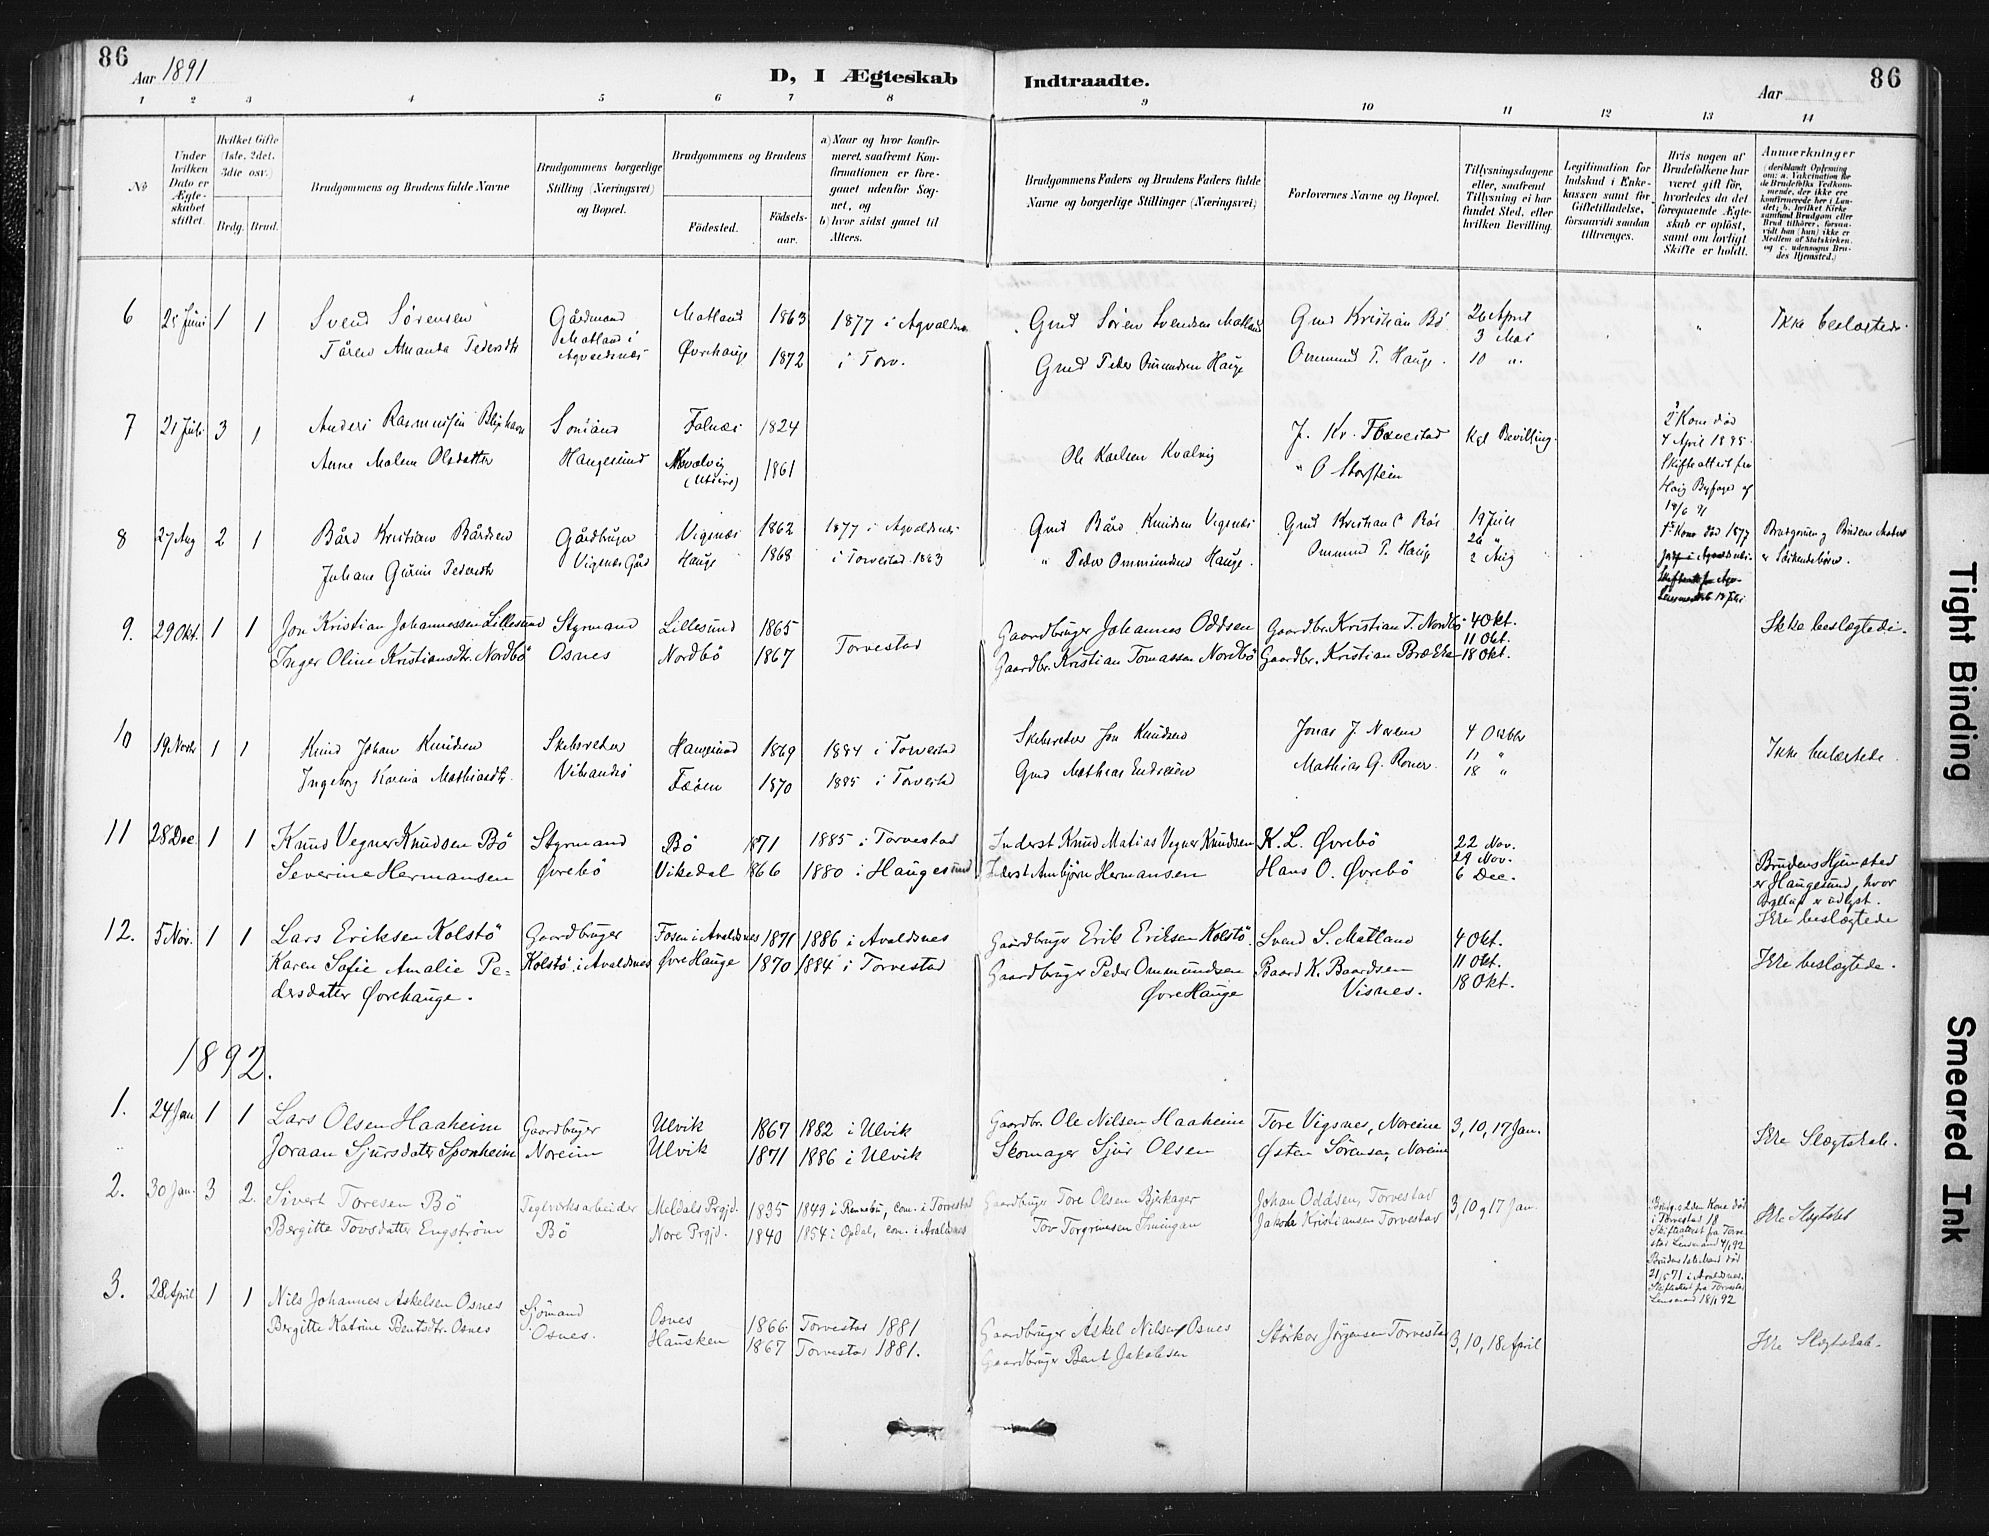 86
Aar 1891
D, I Ægteskab
Indtraadte.
Aar
86
1 2 3 4 5 6 7 8 9 10 11 12 13 14
№
Under hvilken Dato er Ægteskabet stiftet.
Hvilket Gifte (1ste, 2det, 3die osv.)
Brdg.
Brud.
Brudgommens og Brudens fulde Navne
Brudgommens borgerlige Stilling (Næringsvei) og Bopæl.
Brudgommens og Brudens
Fødested.
Fødselsaar.
a) Naar og hvor konfirmeret, saafremt Konfirmationen er foregaaet udenfor Sognet, og
b) hvor sidst gaaet til Alters.
Brudgommens Faders og Brudens Faders fulde Navne og borgerlige Stillinger (Næringsvei)
Forlovernes Navne og Bopæl.
Tillysningsdagene eller, saafremt Tillysning ei har fundet Sted, efter hvilken Bevilling.
Legitimation for Indskud i Enkekassen samt for Giftetilladelse, forsaavidt saadan tiltrænges.
Hvis nogen af Brudefolkene har været gift før, hvorledes da det foregaaende Ægteskab er opløst, samt om lovligt Skifte er holdt.
Anmærkninger
(deriblandt Oplysning om: a. Vakcination for de Brudefolks Vedkommende, der ikke ere konfirmerede her i Landet; b. hvilket Kirkesamfund Brudgom eller Brud tilhører, forsaavidt han (hun) ikke er Medlem af Statskirken, og c. udensogns Brudes Hjemsted.)
6 25 Juni 1 1 Svend Sørensen Gårdmand Matland 1863 1877 i Agvaldsn. Gmd Søren Svendsen Matland Gmd Kristian Bö 26 April Ikke beslægtede.
Tåren Amanda Pedersdtr Matland i Agvaldsnæs Øvrehauge 1872 i Torv. Gmd Peder Omundsen Hauge Ommund P. Hauge. 3 Mai
10 "
7 21 Juli 3 1 Anders Rasmussen Blixhavn Sømand Falnæs 1824 Kgl Bevilling. 2 Kone död
Anne Malene Olsdatter Haugesund Kvalvig (Utsire) 1861 Ole Karlsen Kvalvig " O Storstein Skifteattest fra
8 27 Aug 2 1 Bård Kristian Bårdsen Gårdbruger Vigsnæs 1862 1877 i Agvaldsnæs Gmd Bård Knudsen Vigsnæs Gmd Kristian Bös 19 Juli 1ste Kone död 1877
Johane Gurine Pedersdtr Vigsnæs Gård Hauge 1868 i Torvestad 1883 " Peder Ommundsen Hauge. Ommund P. Haug 26 "
2 Aug
9. 29 Okt. 1 1 Jon Kristian Johannessen Lillesund Styrmand Lillesund 1865 Torvestad Gaardbruger Johannes Oddsen Gaardbr. Kristian T. Nordbö 4 Okt. Ikke beslægtede.
Inger Oline Kristiansdtr. Nordbö Osnes Nordbö 1867 Gaardbr. Kristian Tomassen Nordbö Gaardbr. Kristian Brække 11 Okt.
18 Okt.
10 19 Novbr 1 1 Knud Johan Knudsen Skibsreder Haugesund 1869 1884 i Torvestad Skibsreder Jon Knudsen Jonas J. Noreen 4 Oktbr Ikke beslægtede.
Ingeborg Karina Mathiasdtr. Vibrandsö Fæöen 1870 1885 i Torvestad Gmd Mathias Endresen Mathias G. Röver. 11 "
18 "
11 28 Dec. 1 1 Knud Vegner Knudsen Bö Styrmand Bö 1871 1885 i Torvestad Inderst Knud Matias Vegner Knudsen K. L. Øvrebö 22 Nov.
Severine Hermansen Øvrebö Vikedal 1866 1880 i Haugesund Inderst Anbjörn Hermansen Hans O. Øvrebö 29 Nov.
6 Dec.
Brudens Hjemsted er Haugesund, hvor Bryllup er udlyst.
Ikke beslægtede
12. 5 Nov. 1 1 Lars Eriksen Kolstö Gaardbruger Fosen i Avaldsnes 1871 1886 i Avaldsnes Gaardbruger Erik Eriksen Kolstö. Svend S. Matland 4 Okt.
Karen Sofie Amalie Pe- Kolstö i Avaldsnes Øvre Hauge 1870 1884 i Torvestad Gaardbruger Peder Ommundsen Baard K. Baardsen 11 Okt. Ikke beslægtede.
dersdatter Øvrehauge. Øvre Hauge Visnes. 18 Okt.
1892.
1. 24 Jan 1 1 Lars Olsen Haaheim Gaardbruger Ulvik 1867 1882 i Ulvik Gaardbr. Ole Nilsen Haaheim Tore Vigsnes, Noreim 3, 10, 17 Jan.
Joraan Sjursdatter Sponheim Noreim Ulvik 1871 1886 i Ulvik Skomager Sjur Olsen Østen Sörensen, Noreim Ikke Slægtskab.
2. 30 Jan. 3 2. Sivert Toresen Bö Teglverksarbeider Meldals Prgjd. 1835 1849 i Rennebu, com. i Torvestad Gaardbruger Tore Olsen Bjerkager Johan Oddsen, Torvestad 3, 10 og 17 Jan. Ikke Slægtskab
Bergitte Tovsdatter Engström Bö Nore Prgjd. 1840 1854 i Opdal, com. i Avaldsnes Tov Torgrimsen Jakob Kristiansen Torvestad
Brudg.s 2den Kone död i Torvestad 18
Skifteattest fra Torvestad Lensmand 4/1 92
21/5 71 i Avaldsnes.
Skifteattest fra Torvestad Lensmand 18/1 92
3. 28 April 1 1 Nils Johannes Askelsen Osnes Sjömand Osnes 1866 Torvestad 1881 Gaardbruger Askel Nilsen Osnes Störker Jörgensen Torvestad 3, 10, 18 April
Bergitte Katrine Bentsdtr. Osnes Osnes. Hausken 1867 Torvestad 1881. Gaardbruger Bent Jakobsen Ikke Slægtskab.
Tight Binding
Smeared Ink